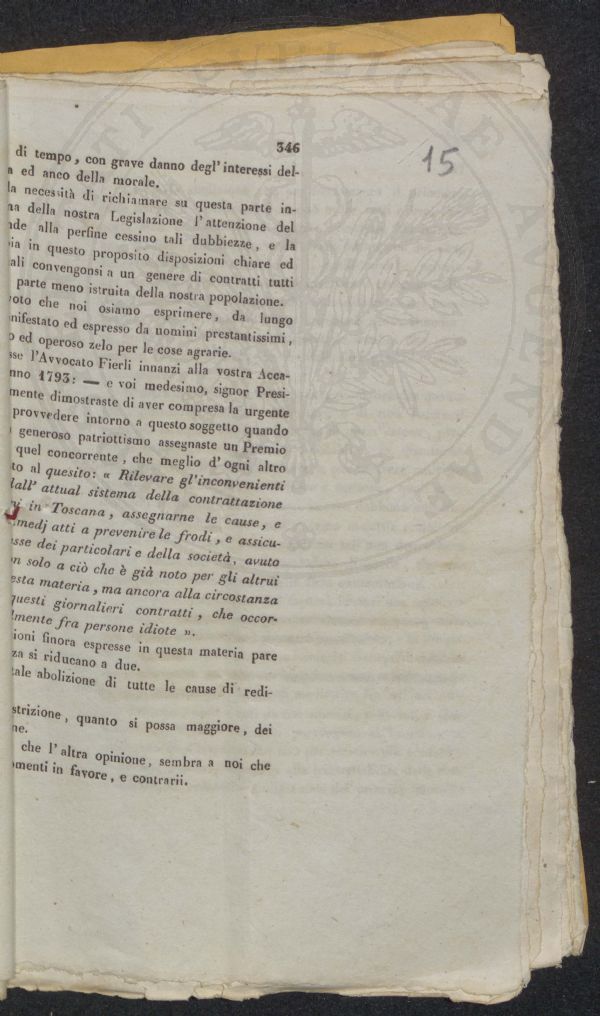 346
15
di tempo, con grave danno degl' interessi del-
ed anco della morale.
la necessità di richiamare su questa parte in-
della nostra Legislazione l' attenzione del
alla perfine cessino tali dubbiezze, e la
in questo proposito disposizioni chiare ed
ali convengonsi a un genere di contratti tutti
parte meno istruita della nostra popolazione.
oto che noi osiamo esprimere, da lungo
nifestato ed espresso da uomini prestantissimi,
ed operoso zelo per le cose agrarie.
sse l'Avvocato Fierli innanzi alla vostra Acca-
nno 1793: — e voi medesimo, signor Presi-
mente dimostraste di aver compresa la urgente
provvedere intorno a questo soggetto quando
generoso patriottismo assegnaste un Premio
quel concorrente, che meglio d' ogni altro
to al quesito: « Rilevare gl'inconvenienti
dall' attual sistema della contrattazione
in Toscana, assegnarne le cause, e
medj atti a prevenire le frodi, e assicu-
sse dei particolari e della società, avuto
n solo a ciò che è già noto per gli altrui
esta materia, ma ancora alla circostanza
questi giornalieri contratti, che occor-
lmente fra persone idiote ».
ioni finora espresse in questa materia pare
za si riducano a due.
ale abolizione di tutte le cause di redi-
strizione, quanto si possa maggiore, dei
ne.
che l' altra opinione, sembra a noi che
menti in favore, e contrarii.